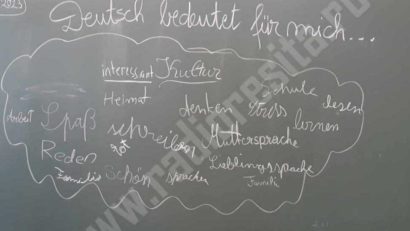 2023
Deutsch bedeutet für mich...
interessant Kultur
Heimat Schule
denken Stress lesen
Arbeit Spaß schreiben lernen
Muttersprache
Reden gut
Lieblingssprache
Familie Schön sprechen Familie
www.radioresita.ro